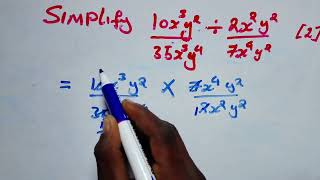 Simplify 10x³y²/35x³y⁴ ÷ 2x²y²/7x⁴y² [2]
= x³y² × 7x⁴y²/12x²y²